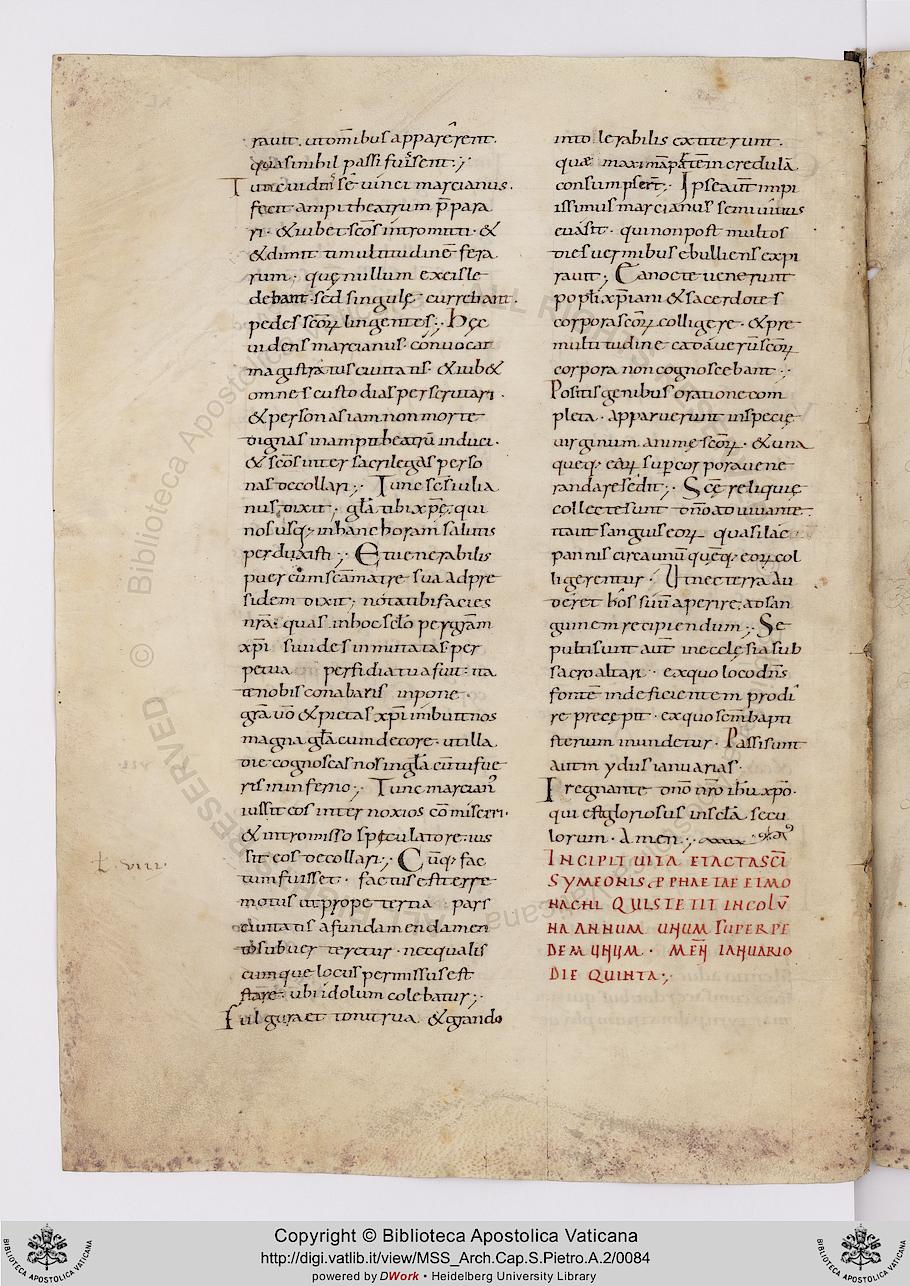 rauit. ut om̄ibus apparerent.
quasi nihil passi fuissent;
Tunc uidens se uinci marcianus.
fecit ampitheatrum p̄para
ri. & iubet sc̄os intromitti. &
& dimitti multitudinē fera
rum; quę nullum ex eis le
debant. sed singulę currebant.
pedes sc̄oꝝ lingentes; hęc
uidens marcianus. conuocat
magistratus ciuitatis. & iub&
omnes custodias perscrutari.
& personas iam non morte
dignas in ampitheatrū induci.
& sc̄os inter sacrilegas perso
nas decollari; Tunc sc̄s iulia
nus dixit. gl̄a tibi xp̄ę; qui
nos usq; in hanc horam salutis
perduxisti; Et uenerabilis
puer cum sc̄a matre sua ad pre
sidem dixit; nota tibi facies
nr̄as quas in hoc
xp̄i sui
petua perfidia tua fuit. ita
& nobis conabaris inpone
gr̄a uō & pietas xp̄i imbuit nos
magna gl̄a cum decore. ut illa
die cognoscas nos in gl̄a cū tu fue
ris in inferno; Tunc marcian'
iussit eos inter noxios cō misceri.
& intromisso spęculatore. ius
sit eos decollari; Cūq; fac
tum fuisset. factus est terre
motus ut prope tertia pars
ciuitatis a fundamen
teretur. nec qualis
cumque locus permissus est
stare. ubi idolum colebatur;
Fulgura et tonitrua & grando
intolerabilis extiterunt.
quæ maximā partē incredulā
consumpsert̄; Ipse aut̄ impi
issimus marcianus semiuiuus
euasit. qui non post multos
dies uermibus ebulliens expi
rauit; Ea nocte uenerunt
popl̄i xp̄iani & sacerdotes
corpora sc̄oꝝ colligere. & pre
multitudine cadauerū sc̄oꝝ
corpora non cognoscebant;
Positis genibus oratione com
pleta. apparuerunt in specię
uirginum animę sc̄oꝝ. & una
queq; eaꝝ sup̄ corpora uene
randa resedit; Sc̄ę reliquię
collecte sunt dn̄o adiuuante.
ita ut sanguis eoꝝ quasi lac
pannis circa unū quēq; eoꝝ col
ligerentur. Ut nec terra au
deret hos suū aperire. ad san
guinem recipiendum; Se
pulti sunt aut̄ in ecclęsia sub
sacro altari. ex quo loco dn̄s
fontē indeficientem prodi
re precępit. ex quo sem̄ bapti
sterium inundetur. Passi sunt
autm̄ ydus ianuarias.
Regnante dn̄o nr̄o ihū xp̄o.
qui est gloriosus in sc̄la secu
lorum. Amen;
INCIPIT UITA ET ACTA SC̄I
SYMEONIS. PPHAETAE ET MO
NACHI QUI STETIT IN COLŪ
NA ANNUM UNUM SUPER PE
DEM UNUM. MEN̄ IANUARIO
DIE QUINTA;
Copyright © Biblioteca Apostolica Vaticana
http://digi.vatlib.it/view/MSS_Arch.Cap.S.Pietro.A.2/0084
powered by DWork • Heidelberg University Library
BIBLIOTECA APOSTOLICA VATICANA
BIBLIOTECA APOSTOLICA VATICANA